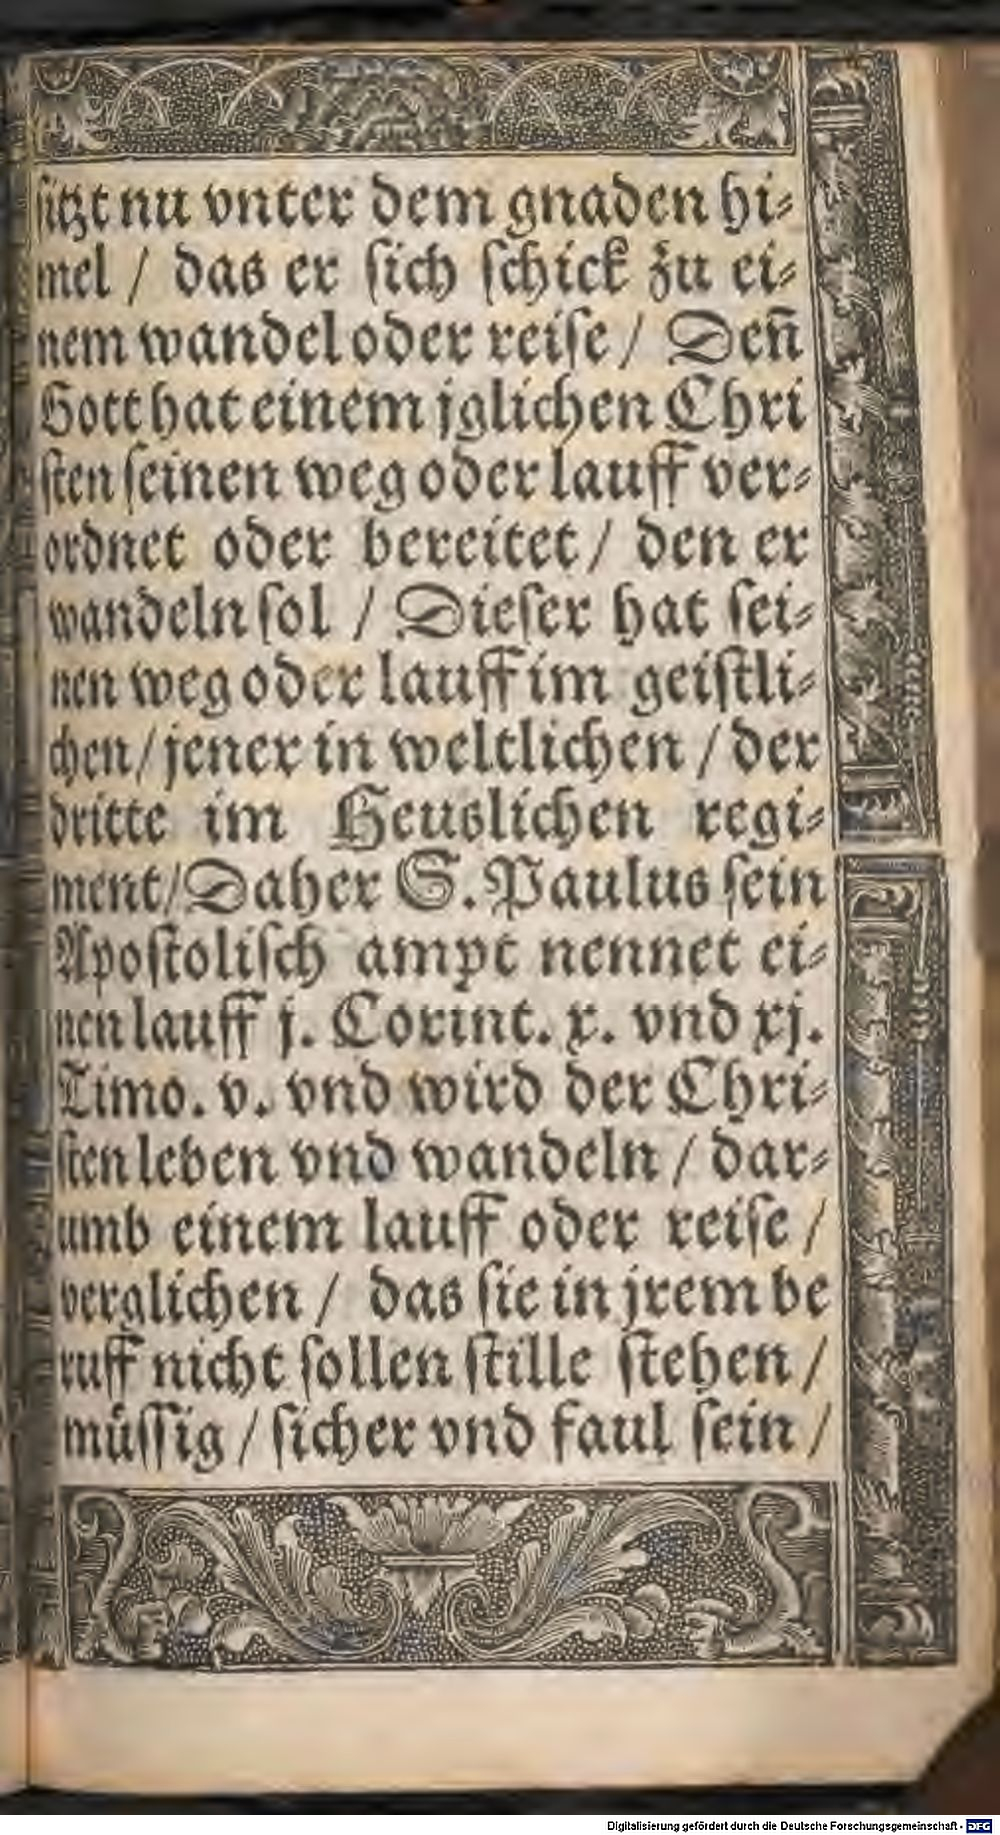 sitzt nu vnter dem gnaden hi⸗
mel / das er sich schick zu ei⸗
nem wandel oder reise / Deñ
Gott hat einem jglichen Chri
sten seinen weg oder lauff ver⸗
ordnet oder bereitet / den er
wandeln sol / Dieser hat sei⸗
nen weg oder lauff im geistli⸗
chen / jener in weltlichen / der
dritte im Heuslichen regi⸗
ment / Daher S. Paulus sein
Apostolisch ampt nennet ei⸗
nen lauff j. Corint. x. vnd xj.
Timo. v. vnd wird der Chri⸗
sten leben vnd wandeln / dar⸗
umb einem lauff oder reise /
verglichen / das sie in jrem be
ruff nicht sollen stille stehen /
müssig / sicher vnd faul sein /
Digitalisierung gefördert durch die Deutsche Forschungsgemeinschaft - DFG